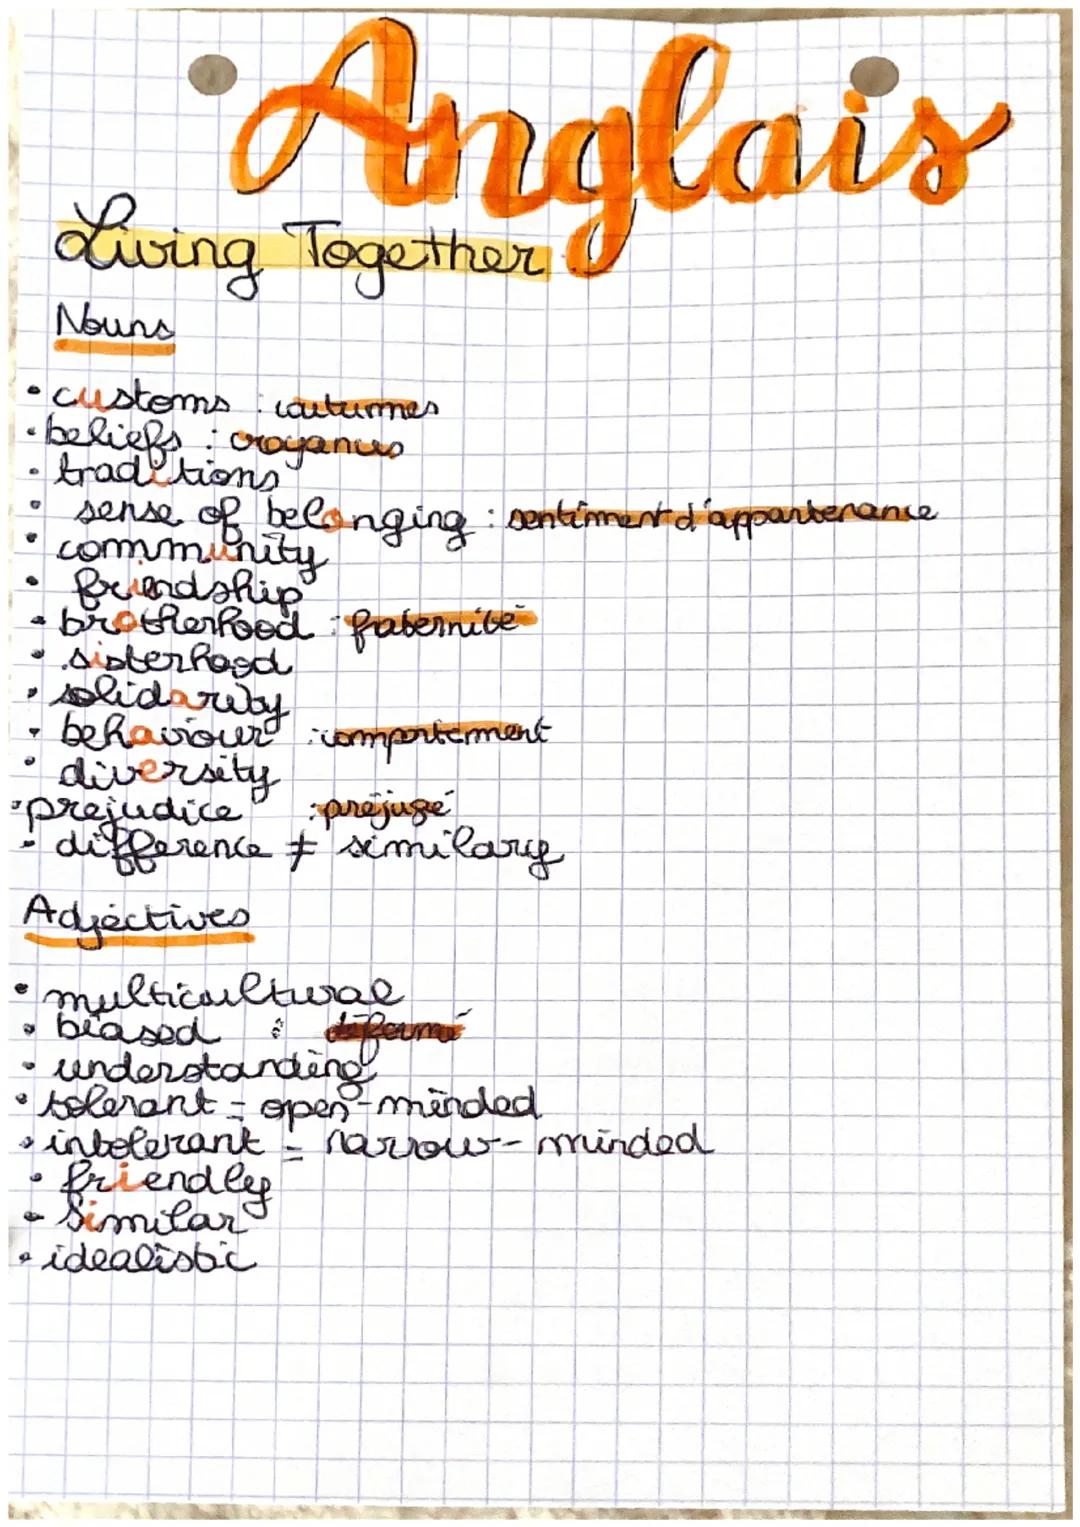 Anglais
Living Together
Nouns
• customs : coutumes
• beliefs : croyances
• traditions
• sense of belonging : sentiment d'appartenance
• community
• friendship
• brotherhood : fraternité
• sisterhood
• solidarity
• behaviour : comportement
• diversity
• prejudice : préjugé
• difference ≠ similary
Adjectives
• multicultural
• biased : déformé
• understanding
• tolerant = open-minded
• intolerant = narrow-minded
• friendly
• similar
• idealistic